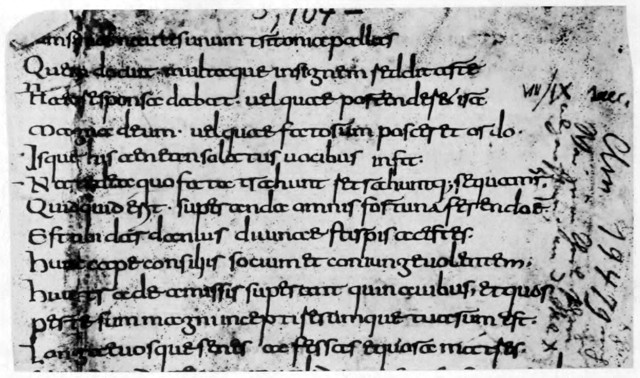 5, 704 –
unum tritonia pallas
Quem docuit multaque insignem reddit arte
Nato responsa dabat· vel quae portendere ira
magna deum· vel quae fatorum posceret ordo·
Isque his aenean solatus vocibus infit:
Nate dea quo fata trahunt retrahuntq; sequamr·
Quidquid est· superanda omnis fortuna ferendo ē
Est tibi dardanius divinae stirpis acestes·
hunc cape consiliis socium et coniunge volentem·
huic trade amissis superant qui navibus; et quos
perte sum magni incepti rerumque tuarum est·
Longaevosque senes ac fessas equore matres·
VIII/IX saec.
Clm 19479